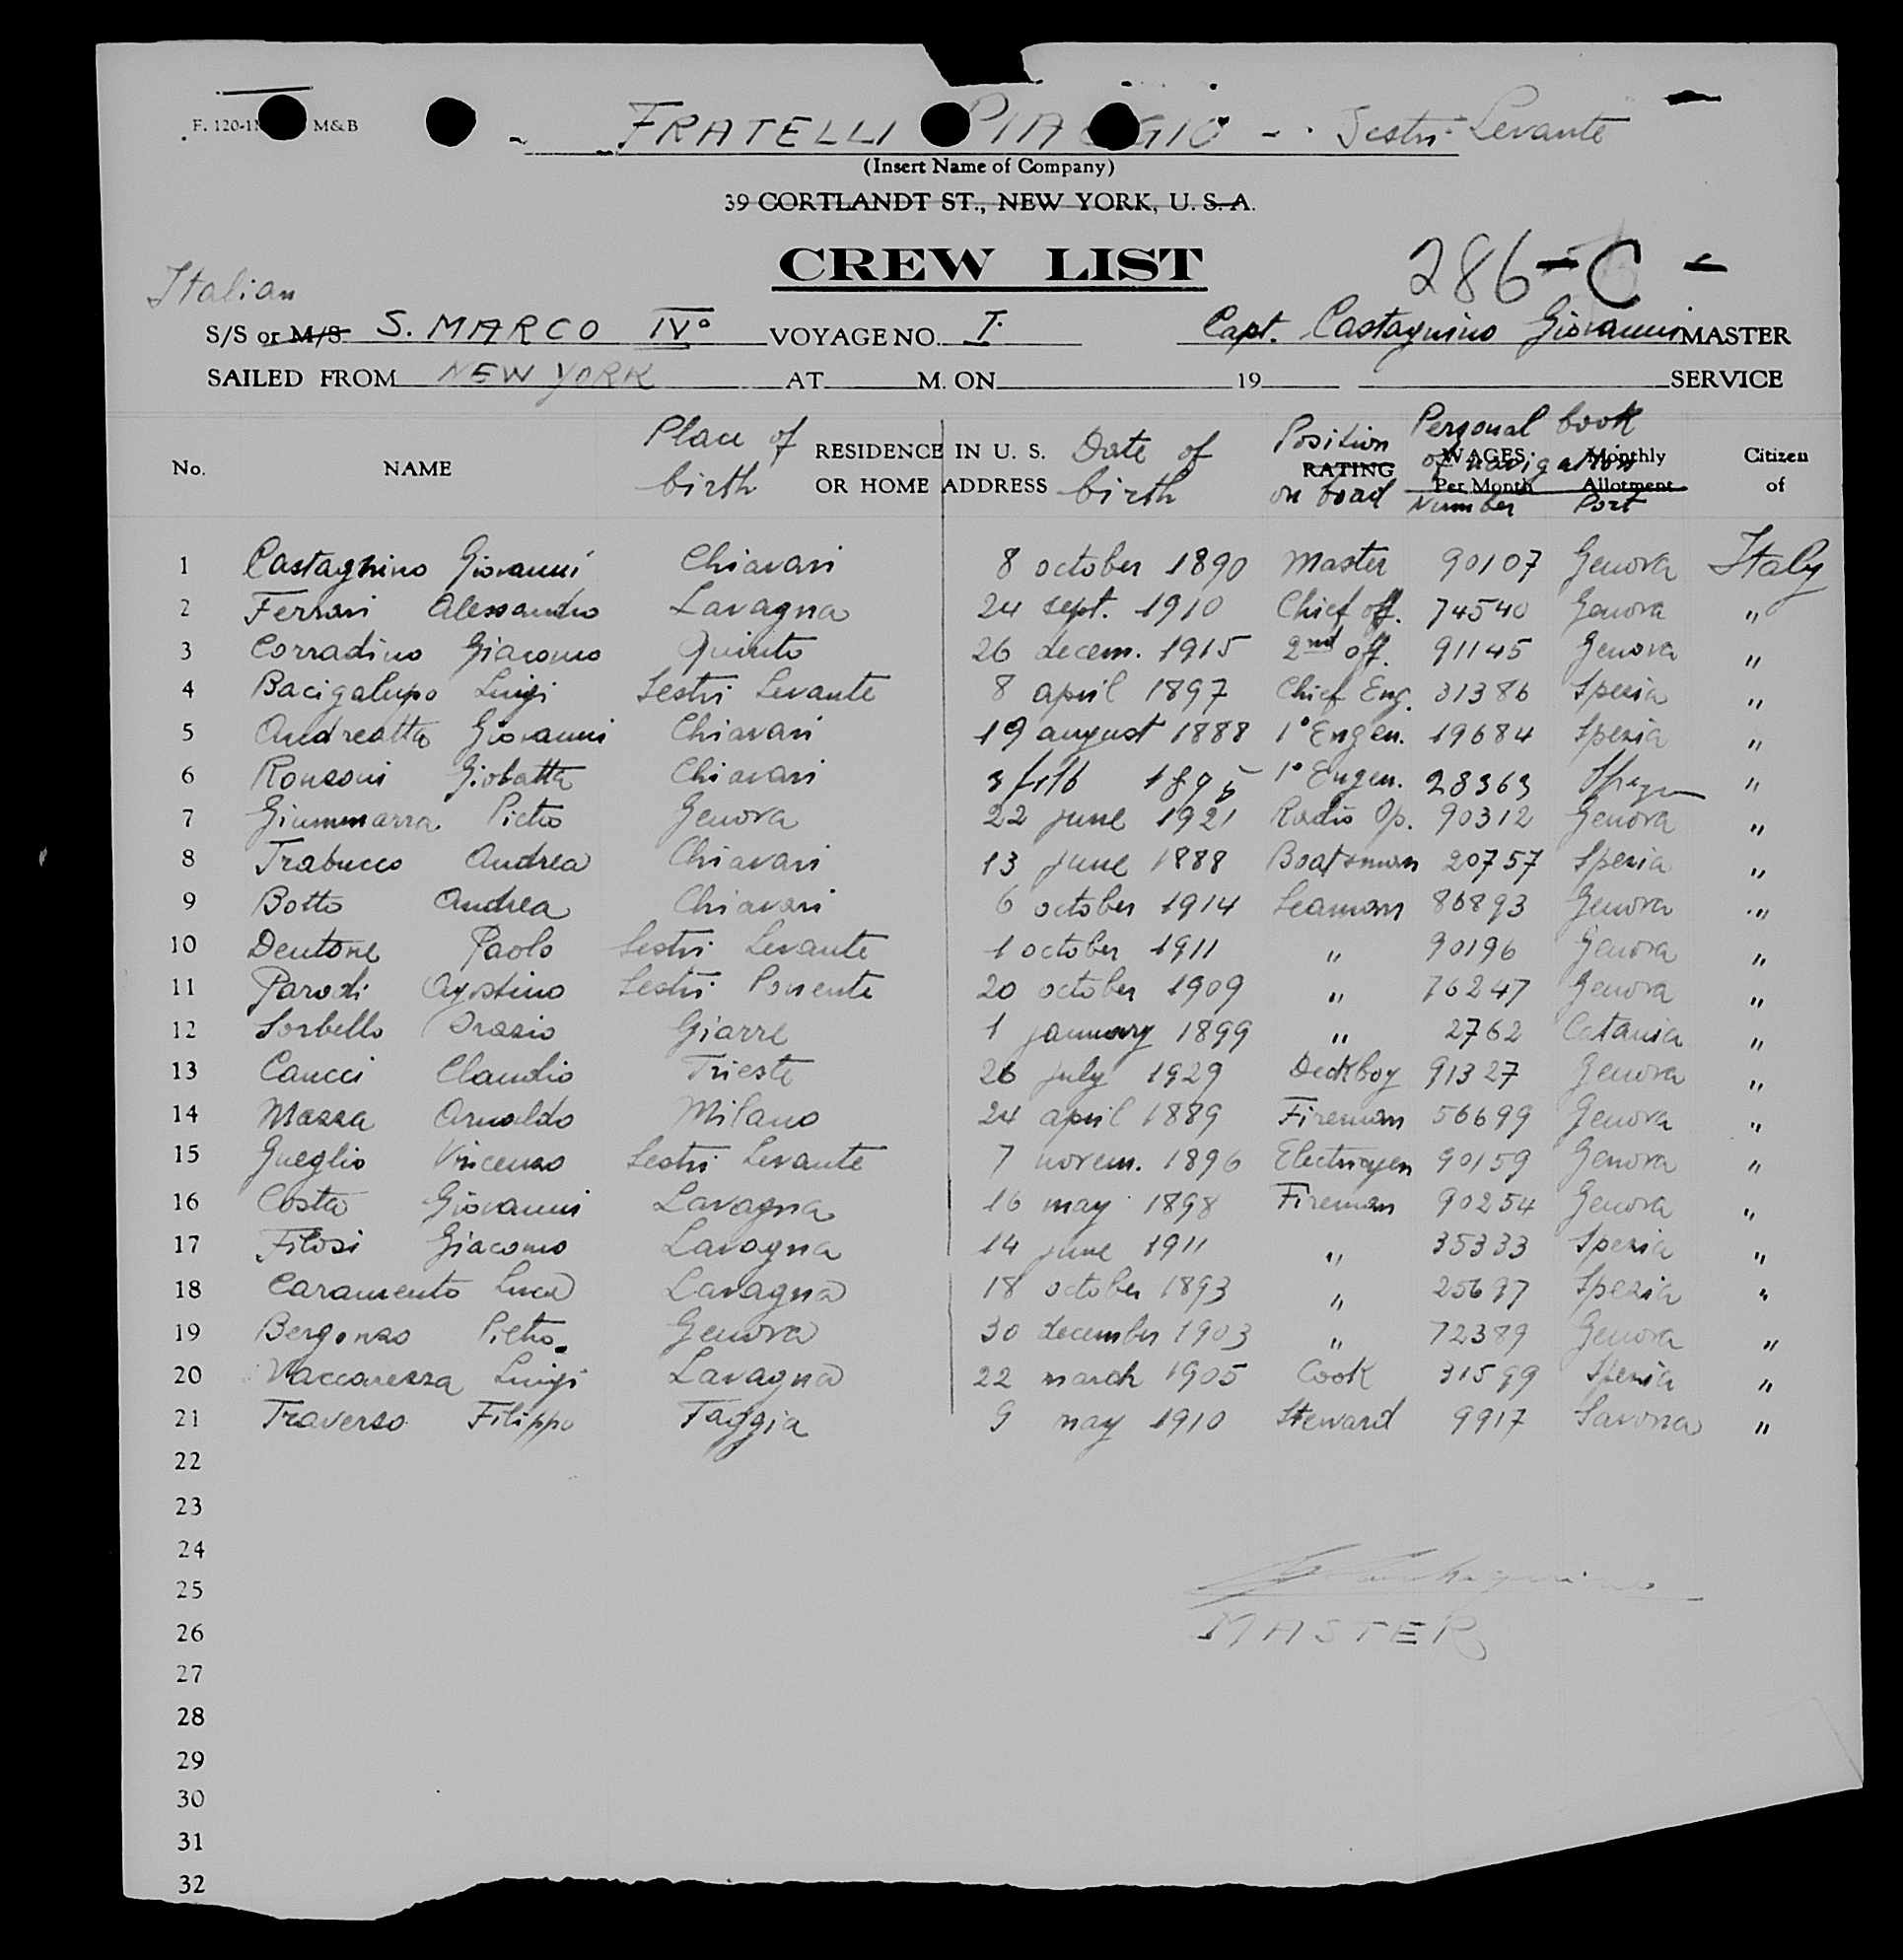 F. 120-1 M&B
FRATELLI PIAGGIO - Sestri Levante
(Insert Name of Company)
39 CORTLANDT ST., NEW YORK, U. S. A.
CREW LIST
286-C -
Italian
S/S or M/S S. MARCO IVº VOYAGE NO. I. Capt. Castagnino Giovanni MASTER
SAILED FROM NEW YORK AT M. ON 19 SERVICE
No. NAME Place of birth RESIDENCE IN U. S. OR HOME ADDRESS Date of birth Position RATING on board Personal book of navigation WAGES Per Month Monthly Allotment Number Port Citizen of
1 Castagnino Giovanni Chiavari 8 october 1890 Master 90107 Genova Italy
2 Ferrari Alessandro Lavagna 24 sept. 1910 Chief off. 74540 Genova "
3 Corradino Giacomo Quinto 26 decem. 1915 2nd off. 91145 Genova "
4 Bacigalupo Luigi Sestri Levante 8 april 1897 Chief Eng. 31386 Spezia "
5 Andreatta Giovanni Chiavari 19 august 1888 1º Engen. 19684 Spezia "
6 Ronzoni Giobatta Chiavari 3 1895 1º Engen. 28363 "
7 Giummarra Pietro Genova 22 june 1921 Radio Op. 90312 Genova "
8 Trabucco Andrea Chiavari 13 june 1888 Boatsman 20757 Spezia "
9 Botto Andrea Chiavari 6 october 1914 Seaman 86893 Genova "
10 Dentone Paolo Sestri Levante 1 october 1911 " 90196 Genova "
11 Parodi Agostino Sestri Ponente 20 october 1909 " 76247 Genova "
12 Sorbello Orazio Giarre 1 january 1899 " 2762 Catania "
13 Caucci Claudio Trieste 26 july 1929 Deckboy 91327 Genova "
14 Mazza Arnaldo Milano 24 april 1889 Fireman 56699 Genova "
15 Gueglio Vincenzo Sestri Levante 7 novem. 1896 Electricyen 90159 Genova "
16 Costa Giovanni Lavagna 16 may 1898 Fireman 90254 Genova "
17 Filosi Giacomo Lavagna 14 june 1911 " 35333 Spezia "
18 Caramento Luca Lavagna 18 october 1893 " 25697 Spezia "
19 Bergonzo Pietro Genova 30 december 1903 " 72389 Genova "
20 Vaccarezza Luigi Lavagna 22 march 1905 Cook 31599 Spezia "
21 Traverso Filippo Taggia 9 may 1910 Steward 9917 Savona "
22
23
24
25
26 MASTER
27
28
29
30
31
32